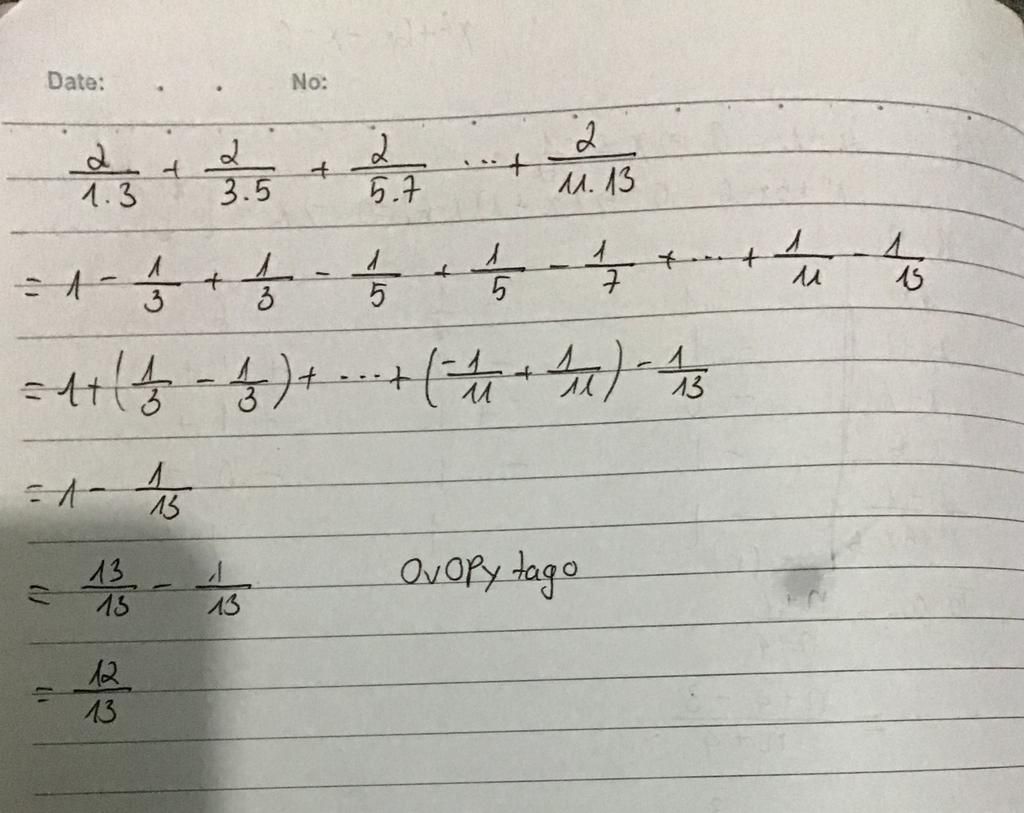 Date: . . No:
2/1.3 + 2/3.5 + 2/5.7 ... + 2/11.13
= 1 - 1/3 + 1/3 - 1/5 + 1/5 - 1/7 + ... + 1/11 - 1/13
= 1 + (1/3 - 1/3) + ... + (-1/11 + 1/11) - 1/13
= 1 - 1/13
= 13/13 - 1/13 OvOPytago
= 12/13